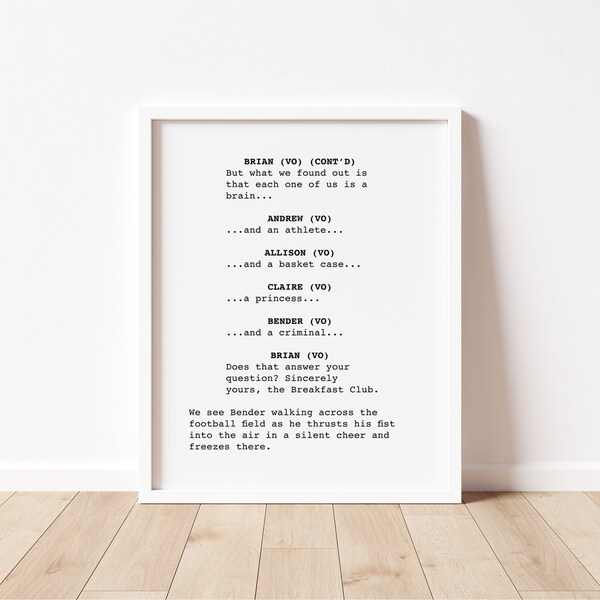 BRIAN (VO) (CONT'D)
But what we found out is
that each one of us is a
brain...
ANDREW (VO)
...and an athlete...
ALLISON (VO)
...and a basket case...
CLAIRE (VO)
...a princess...
BENDER (VO)
...and a criminal...
BRIAN (VO)
Does that answer your
question? Sincerely
yours, the Breakfast Club.
We see Bender walking across the
football field as he thrusts his fist
into the air in a silent cheer and
freezes there.